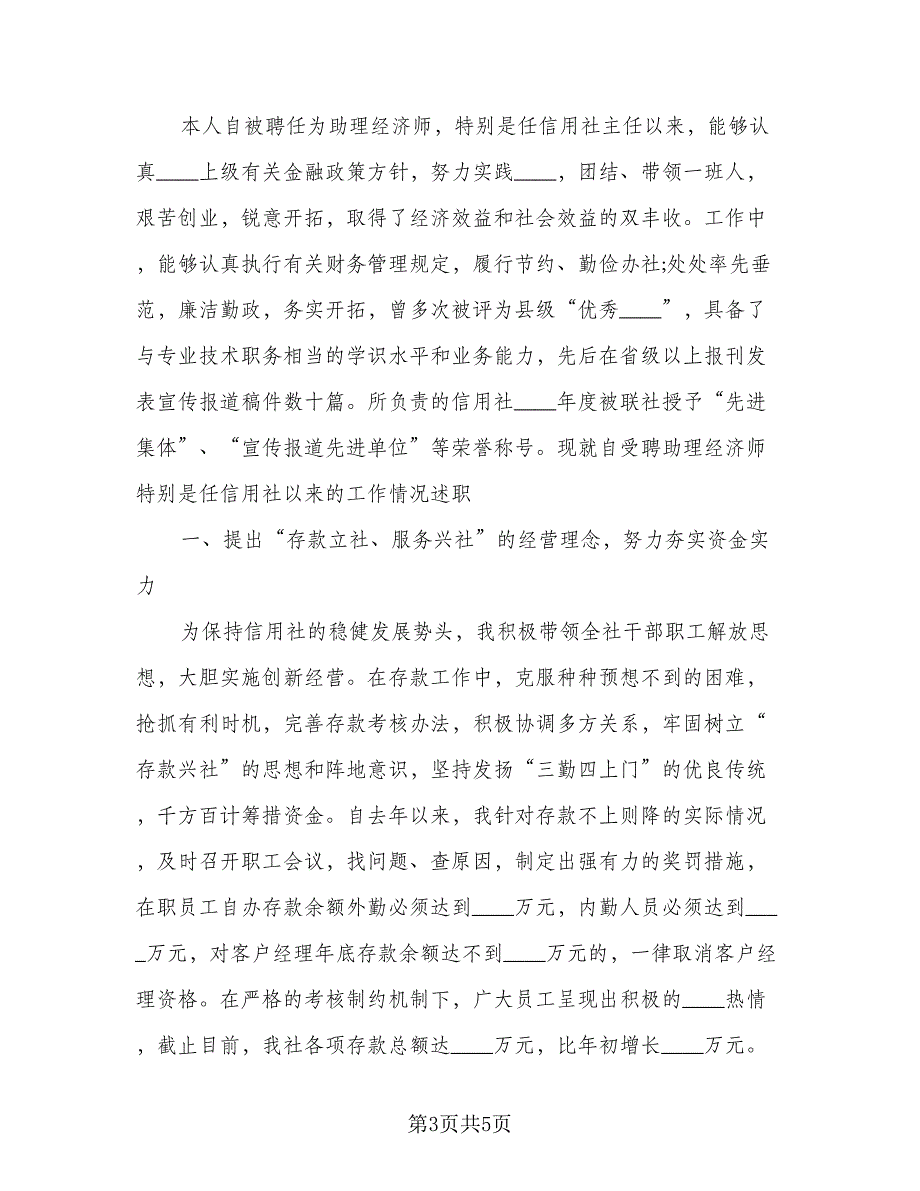 本人自被聘任为助理经济师，特别是任信用社主任以来，能够认
真____上级有关金融政策方针，努力实践____，团结、带领一班人，
艰苦创业，锐意开拓，取得了经济效益和社会效益的双丰收。工作中
，能够认真执行有关财务管理规定，履行节约、勤俭办社;处处率先垂
范，廉洁勤政，务实开拓，曾多次被评为县级“优秀____”，具备了
与专业技术职务相当的学识水平和业务能力，先后在省级以上报刊发
表宣传报道稿件数十篇。所负责的信用社____年度被联社授予“先进
集体”、“宣传报道先进单位”等荣誉称号。现就自受聘助理经济师
特别是任信用社以来的工作情况述职
一、提出“存款立社、服务兴社”的经营理念，努力夯实资金实
力
为保持信用社的稳健发展势头，我积极带领全社干部职工解放思
想，大胆实施创新经营。在存款工作中，克服种种预想不到的困难，
抢抓有利时机，完善存款考核办法，积极协调多方关系，牢固树立“
存款兴社”的思想和阵地意识，坚持发扬“三勤四上门”的优良传统
，千方百计筹措资金。自去年以来，我针对存款不上则降的实际情况
，及时召开职工会议，找问题、查原因，制定出强有力的奖罚措施，
在职员工自办存款余额外勤必须达到____万元，内勤人员必须达到___
_万元，对客户经理年底存款余额达不到____万元的，一律取消客户经
理资格。在严格的考核制约机制下，广大员工呈现出积极的____热情
，截止目前，我社各项存款总额达____万元，比年初增长____万元。
第3页共5页